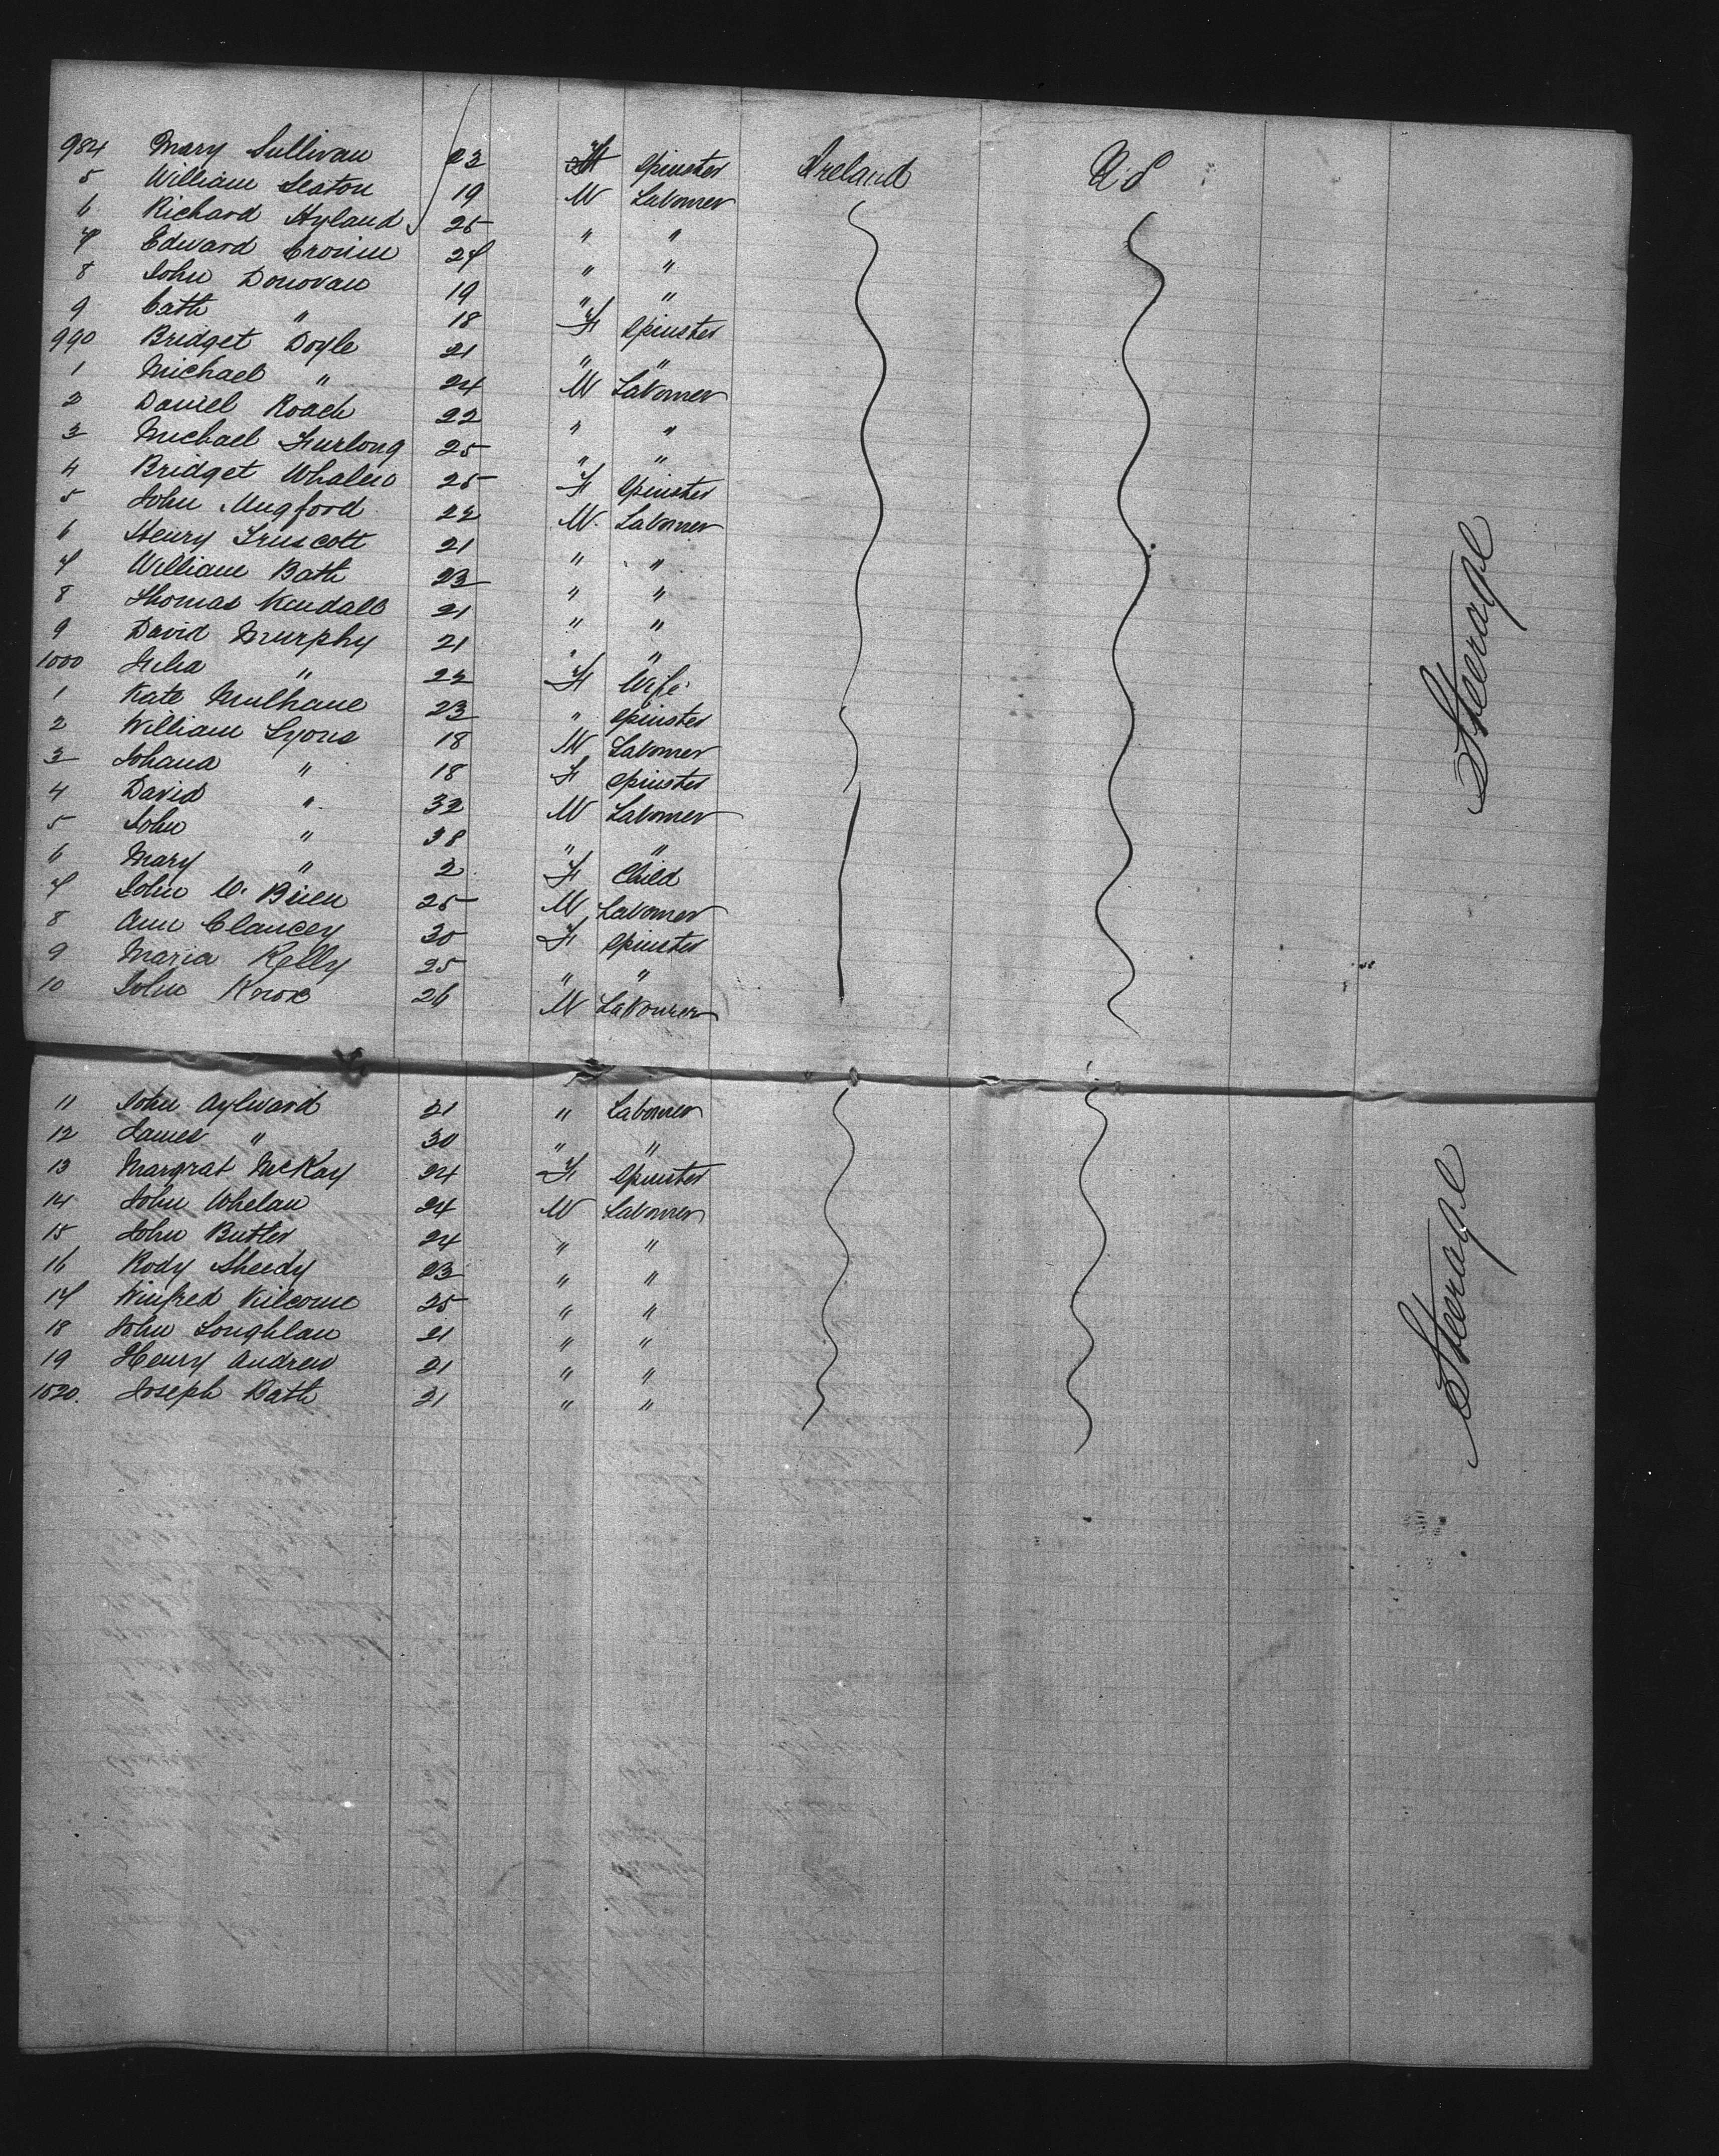 984 Mary Sullivan 23 F Spinster Ireland U.S
5 William Seaton 19 M Labourer
6 Richard Hyland 25 " "
7 Edward Cronin 27 " "
8 John Donovan 19 " "
9 Cath " 18 F Spinster
990 Bridget Doyle 21 " "
1 Michael " 24 M Labourer
2 Daniel Roach 22 " "
3 Michael Furlong 25 " "
4 Bridget Whalen 25 F Spinster
5 John Mugford 22 M. Labourer
6 Henry Truscott 21 " "
7 William Bath 23 " "
8 Thomas Kendall 21 " "
9 David Murphy 21 " "
1000 Julia " 22 F Wife
1 Kate Mulhane 23 " Spinster
2 William Lyons 18 M Labourer
3 Johana " 18 F Spinster
4 David " 32 M Labourer
5 John " 38 " "
6 Mary " 2 F Child
7 John O. Brien 25 M Labourer
8 Ann Clancey 30 F Spinster
9 Maria Kelly 25 " "
10 John Knox 26 M Labourer
Steerage
11 John Aylward 21 " Labourer
12 James " 30 " "
13 Margrat McKay 24 F Spinster
14 John Whelan 24 M Labourer
15 John Butler 24 " "
16 Rody Sheedy 23 " "
17 Winfred 25 " "
18 John Loughlan 21 " "
19 Henry Andrew 21 " "
1020. Joseph Bath 21 " "
Steerage